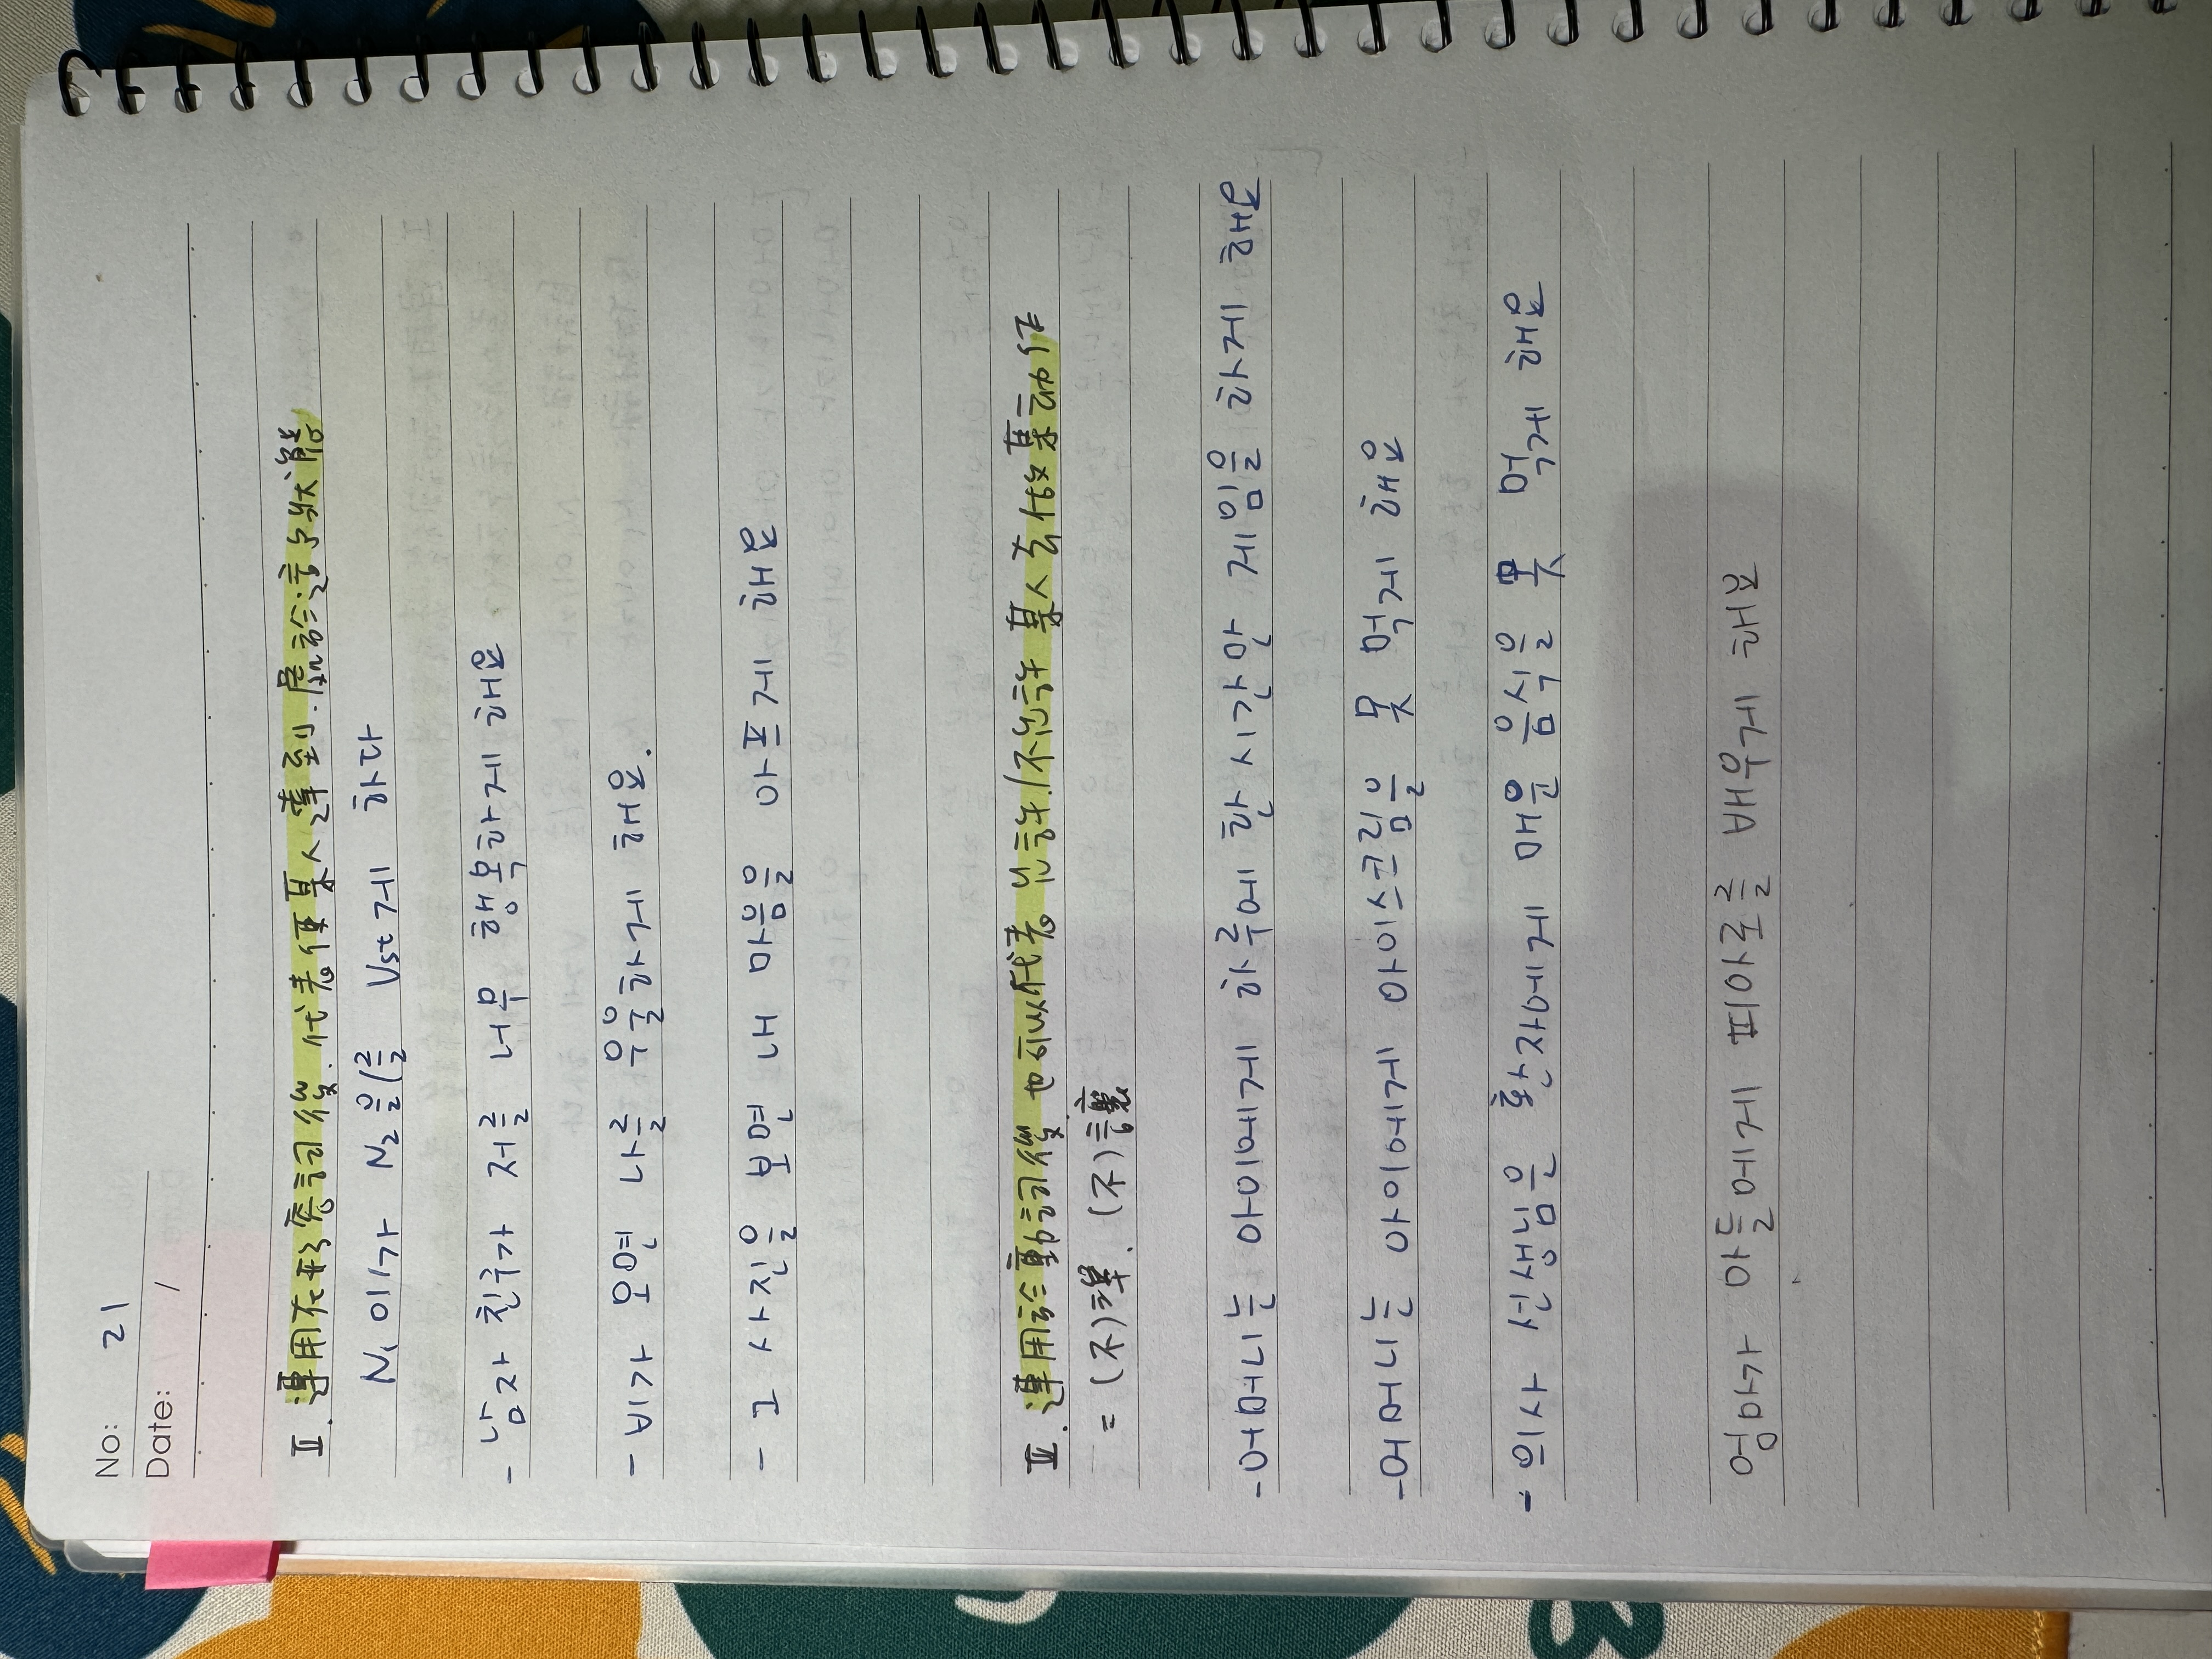 No: 21
Date: /
II. 運用在形容詞後. 代表使某人達到.處於這個狀態
N₁ 이/가 N₂ 을/를 Vst게 하다
- 남자 친구가 저를 너무 행복하게 해요
- 비가 오면 나를 우울하게 해요.
- 그 사진을 보면 내 마음을 아프게 해요
III. 運用於動詞後. 也可以代表 允許/不允許 某人去做某動作
= (不)準. (不)讓
- 어머니는 아이에게 하루에 한 시간만 게임을 하게 해요
- 어머니는 아이에게 아이스크림을 못 먹게 해요
- 의사 선생님은 환자에게 매운 음식을 못 먹게 해요
엄마가 아들에게 피아로를 배우게 해요